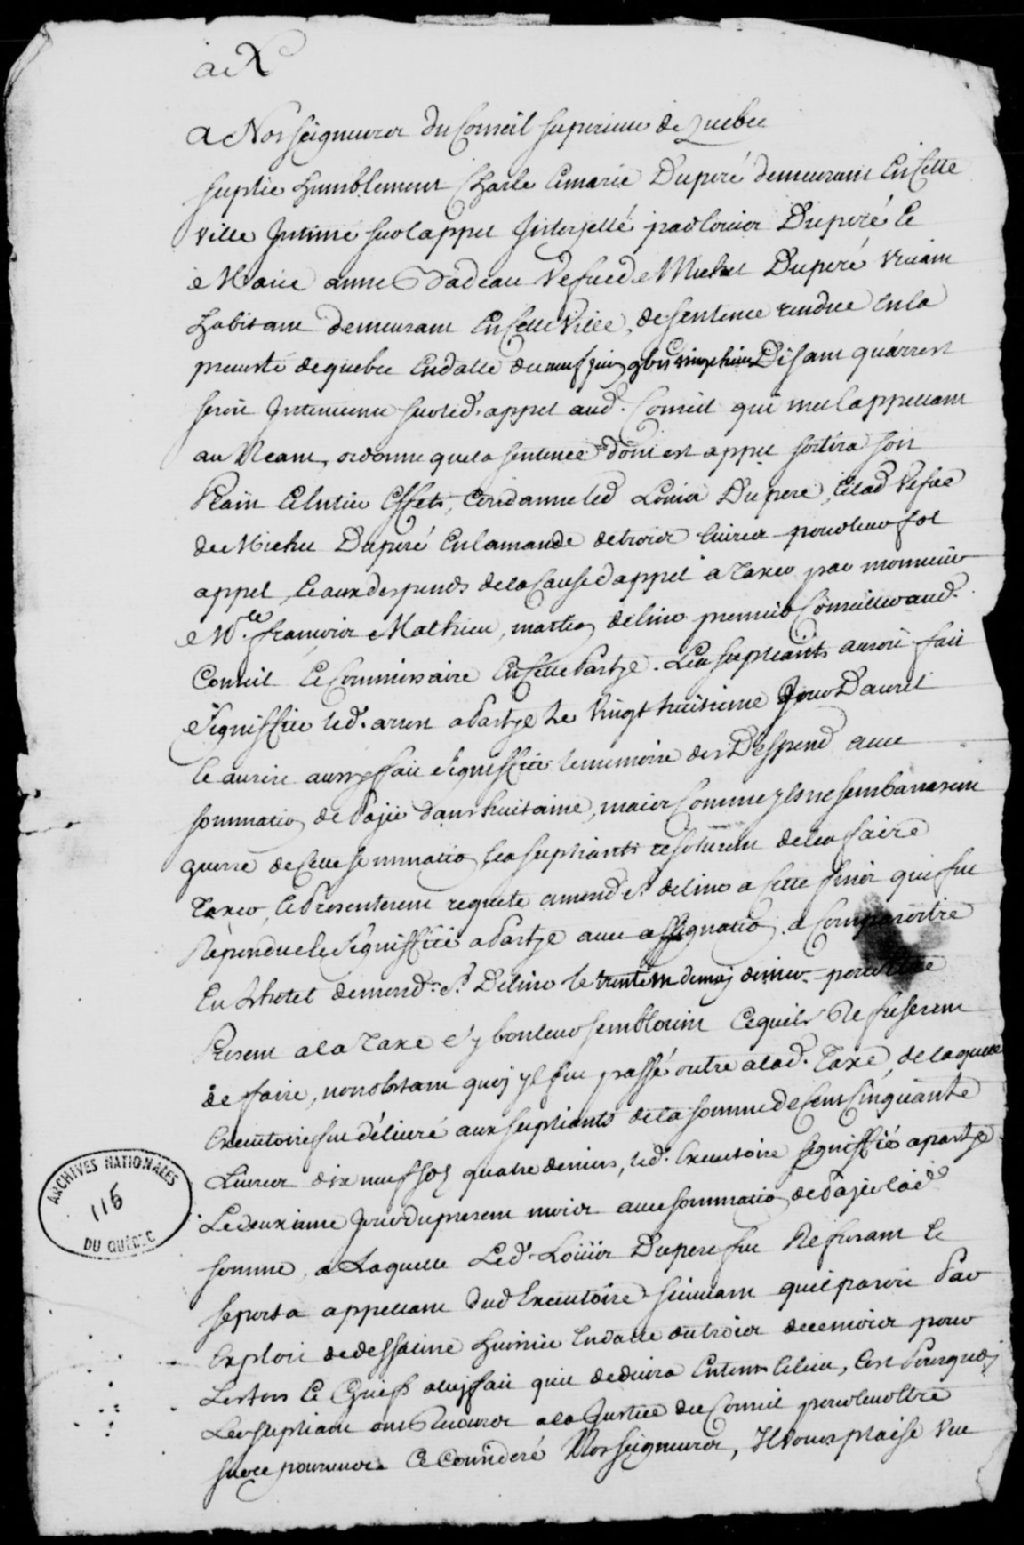 A Nosseigneurs du Conseil superieur de Quebec
suplie humblement Charle Lemarié Duperé demeurant En Cette
ville Intimé sur lappel Interjetté par Louis Duperé Et
Marie anne Nadeau Vefue de Michel Duperé viuant
habitant demeurant En Cette Ville, de sentence rendue En la
preuosté de quebec En datte du Disant quárrest
seroit Interuenu sur led. appel aud. Conseil qui met lappellant
au Neant, ordonne que la sentence dont est appel sortira son
plain Et Entier Effet, Condamne led Louis Dupere, Et lad Vefue
de Michel Duperé En lamande de trois Liures pour leur fol
appel, Et aux despends de la Cause dappel à Taxer par monsieur
Me. francois Mathieu, martin delino premier Conseiller aud.
Conseil Et Commissaire En Cette Partye. Les supliants auroit fait
signiffier led. arrest a Partye Le Vingt huitieme Jour Dauril
Et auroit aussy fait signiffier le memoire des Despend auec
sommation de Paÿer dans huitaine, mais Comme yls ne sembarassent
guerre de Cette sommation les supliants resolurent de les faire
Taxer, Et Presenterent requete amond sr. delino a Cette finir qui fut
Repondue Et signiffiée a Partye auec assignation, a Comparoitre
En Lhotel demond. sr. Delino le trente un de may dernier pour Etre
Present a la Taxe sy bon leur sembloient Cequils Refuserent
de faire, nonobstant quoy yl fut passé outre alad. Taxe, de laquelle
Executoire fut déliuré aux supliants de la somme de Cent Cinquante
Liures dix neuf sols quatre deniers, led. Executoire signiffié a partye
Le deuxieme Jour du present mois auec sommation de Paÿer lad
somme, a Laquelle Led. Loüis Dupere fut Refusant Et
se porta appellant dud Executoire suiuant quil paroit Par
Exploit de dessaline huissier En datte du trois de ce mois pour
Les tors Et Griefs a luy fait quil deduira En tems Et lieu, Cest Pourquoy
Les supliant ont Recours a la Justice du Conseil pour leur Etre
sur ce pourueu. Ce Consideré Nosseigneurs, Il vous plaise Vue
ARCHIVES NATIONALES
116
DU QUÉBEC